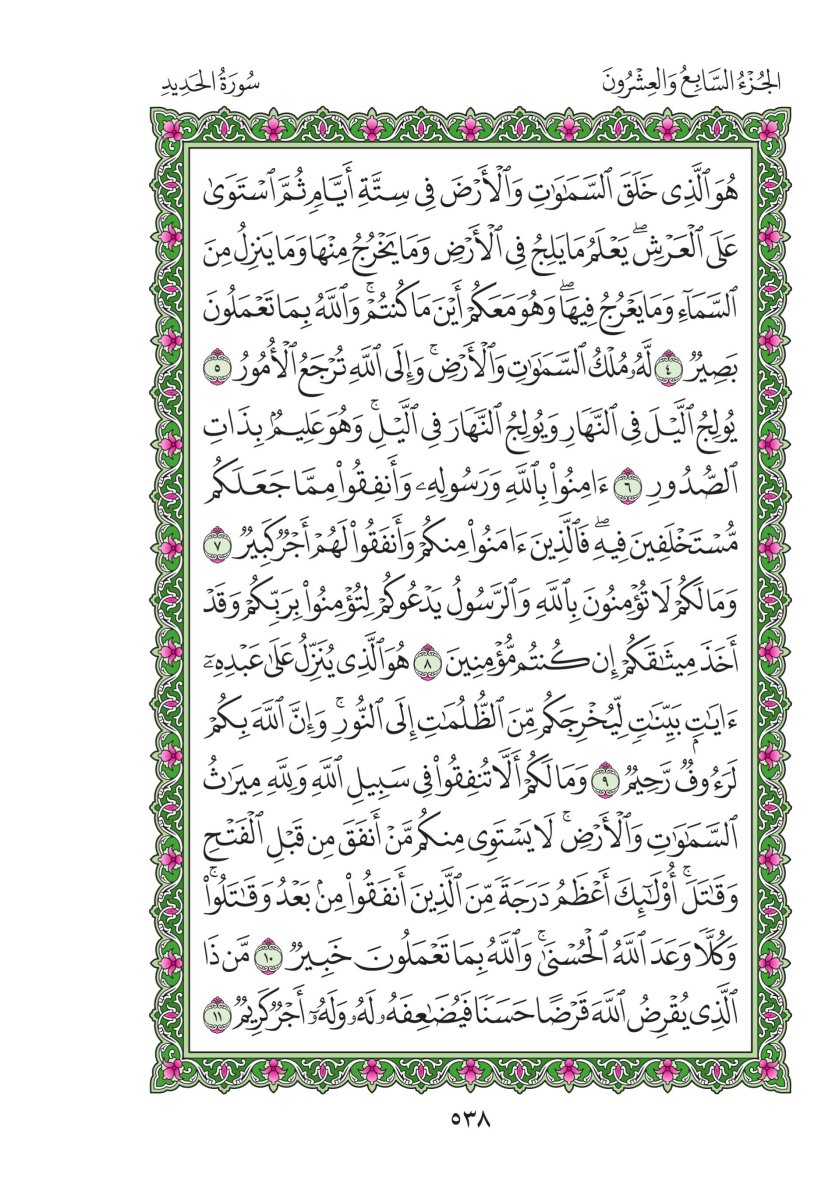 الجُزْءُ السَّابِعُ وَالعِشْرُونَ
سُورَةُ الحَدِيدِ
هُوَ ٱلَّذِى خَلَقَ ٱلسَّمَٰوَٰتِ وَٱلْأَرْضَ فِى سِتَّةِ أَيَّامٍ ثُمَّ ٱسْتَوَىٰ
عَلَى ٱلْعَرْشِ ۖ يَعْلَمُ مَا يَلِجُ فِى ٱلْأَرْضِ وَمَا يَخْرُجُ مِنْهَا وَمَا يَنزِلُ مِنَ
ٱلسَّمَآءِ وَمَا يَعْرُجُ فِيهَا ۖ وَهُوَ مَعَكُمْ أَيْنَ مَا كُنتُمْ ۚ وَٱللَّهُ بِمَا تَعْمَلُونَ
بَصِيرٌ ٤ لَّهُۥ مُلْكُ ٱلسَّمَٰوَٰتِ وَٱلْأَرْضِ ۚ وَإِلَى ٱللَّهِ تُرْجَعُ ٱلْأُمُورُ ٥
يُولِجُ ٱلَّيْلَ فِى ٱلنَّهَارِ وَيُولِجُ ٱلنَّهَارَ فِى ٱلَّيْلِ ۚ وَهُوَ عَلِيمٌۢ بِذَاتِ
ٱلصُّدُورِ ٦ ءَامِنُوا۟ بِٱللَّهِ وَرَسُولِهِۦ وَأَنفِقُوا۟ مِمَّا جَعَلَكُم
مُّسْتَخْلَفِينَ فِيهِ ۖ فَٱلَّذِينَ ءَامَنُوا۟ مِنكُمْ وَأَنفَقُوا۟ لَهُمْ أَجْرٌ كَبِيرٌ ٧
وَمَا لَكُمْ لَا تُؤْمِنُونَ بِٱللَّهِ وَٱلرَّسُولُ يَدْعُوكُمْ لِتُؤْمِنُوا۟ بِرَبِّكُمْ وَقَدْ
أَخَذَ مِيثَٰقَكُمْ إِن كُنتُم مُّؤْمِنِينَ ٨ هُوَ ٱلَّذِى يُنَزِّلُ عَلَىٰ عَبْدِهِۦٓ
ءَايَٰتٍۭ بَيِّنَٰتٍ لِّيُخْرِجَكُم مِّنَ ٱلظُّلُمَٰتِ إِلَى ٱلنُّورِ ۚ وَإِنَّ ٱللَّهَ بِكُمْ
لَرَءُوفٌ رَّحِيمٌ ٩ وَمَا لَكُمْ أَلَّا تُنفِقُوا۟ فِى سَبِيلِ ٱللَّهِ وَلِلَّهِ مِيرَٰثُ
ٱلسَّمَٰوَٰتِ وَٱلْأَرْضِ ۚ لَا يَسْتَوِى مِنكُم مَّنْ أَنفَقَ مِن قَبْلِ ٱلْفَتْحِ
وَقَٰتَلَ ۚ أُو۟لَٰٓئِكَ أَعْظَمُ دَرَجَةً مِّنَ ٱلَّذِينَ أَنفَقُوا۟ مِنۢ بَعْدُ وَقَٰتَلُوا۟ ۚ
وَكُلًّا وَعَدَ ٱللَّهُ ٱلْحُسْنَىٰ ۚ وَٱللَّهُ بِمَا تَعْمَلُونَ خَبِيرٌ ١٠ مَّن ذَا
ٱلَّذِى يُقْرِضُ ٱللَّهَ قَرْضًا حَسَنًا فَيُضَٰعِفَهُۥ لَهُۥ وَلَهُۥٓ أَجْرٌ كَرِيمٌ ١١
٥٣٨